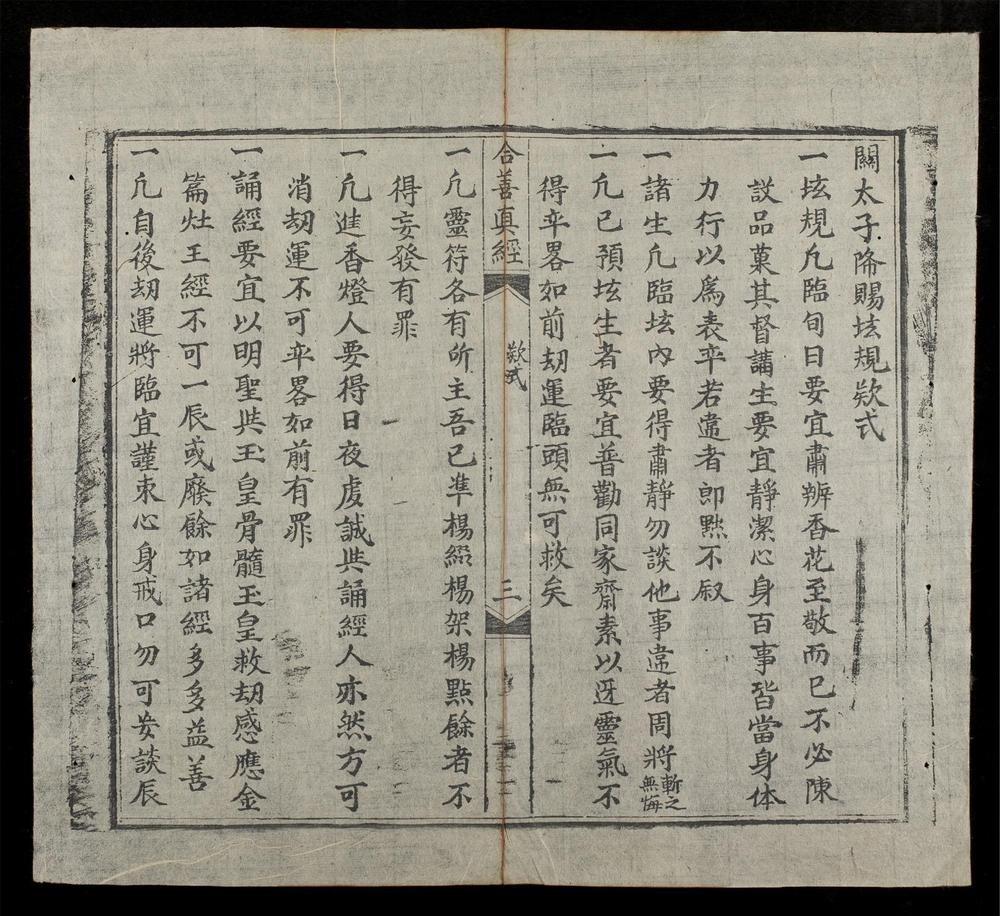 關太子降賜坛規欵式
一坛規凢臨旬日要宜肅辨香花至敬而已不必陳
設品菓其督講生要宜靜潔心身百事皆當身体
力行以為表卒若違者即黙不叙
一諸生凢臨坛內要得肅靜勿談他事違者周將斬之無悔
一凢已預坛生者要宜普勸同家齋素以迓靈氣不
得卒畧如前刼運臨頭無可救矣
合善真經 欵式 三
一凢靈符各有所主吾已凖楊緞楊架楊點餘者不
得妄發有罪
一凢進香燈人要得日夜虔誠共誦經人亦然方可
消刼運不可卒畧如前有罪
一誦經要宜以明聖共玉皇骨髓玉皇救刼感應金
篇灶王經不可一辰或廢餘如諸經多多益善
一凢自後刼運將臨宜謹束心身戒口勿可妄談辰